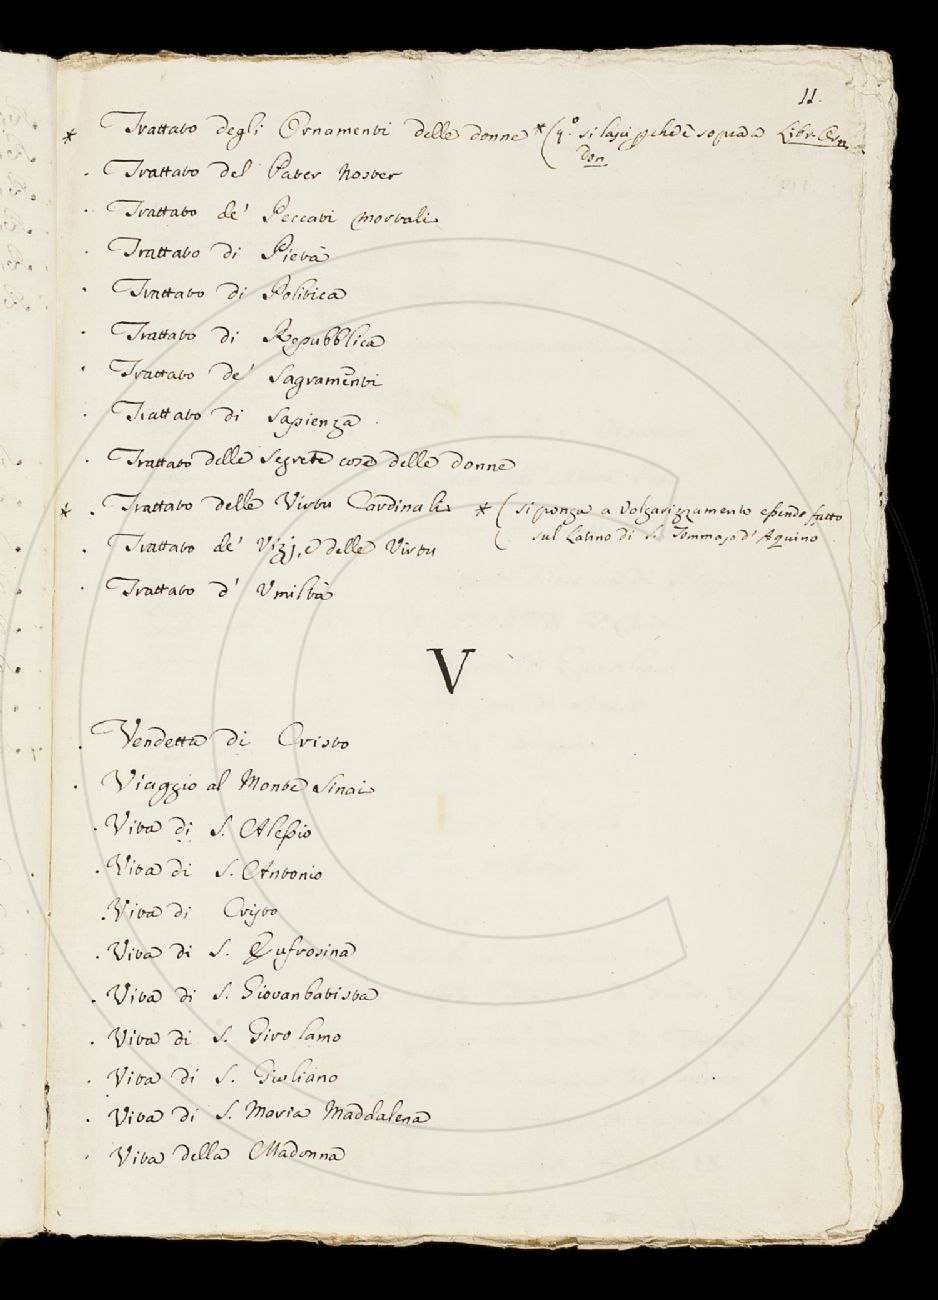 11.
* Trattato degli Ornamenti delle donne * (q.º si lasci pchè è sopra a Libr. Orn.
don.
. Trattato del Pater Noster
. Trattato de' Peccati mortali
. Trattato di Pietà
. Trattato di Politica
. Trattato di Repubblica
. Trattato de' Sagramenti
. Trattato di Sapienza
. Trattato delle Segrete cose delle donne
* . Trattato delle Virtu Cardinali * ( si ponga a Volgarizzamento essendo fatto
sul Latino di S. Tommaso d' Aquino
. Trattato de' Vizj, e delle Virtu
. Trattato d' Umiltà
V
. Vendetta di Cristo
. Viaggio al Monte Sinai
. Vita di S. Alessio
. Vita di S. Antonio
. Vita di Cristo
. Vita di S. Eufrosina
. Vita di S. Giovanbatista
. Vita di S. Girolamo
. Vita di S. Giuliano
. Vita di S. Maria Maddalena
. Vita della Madonna